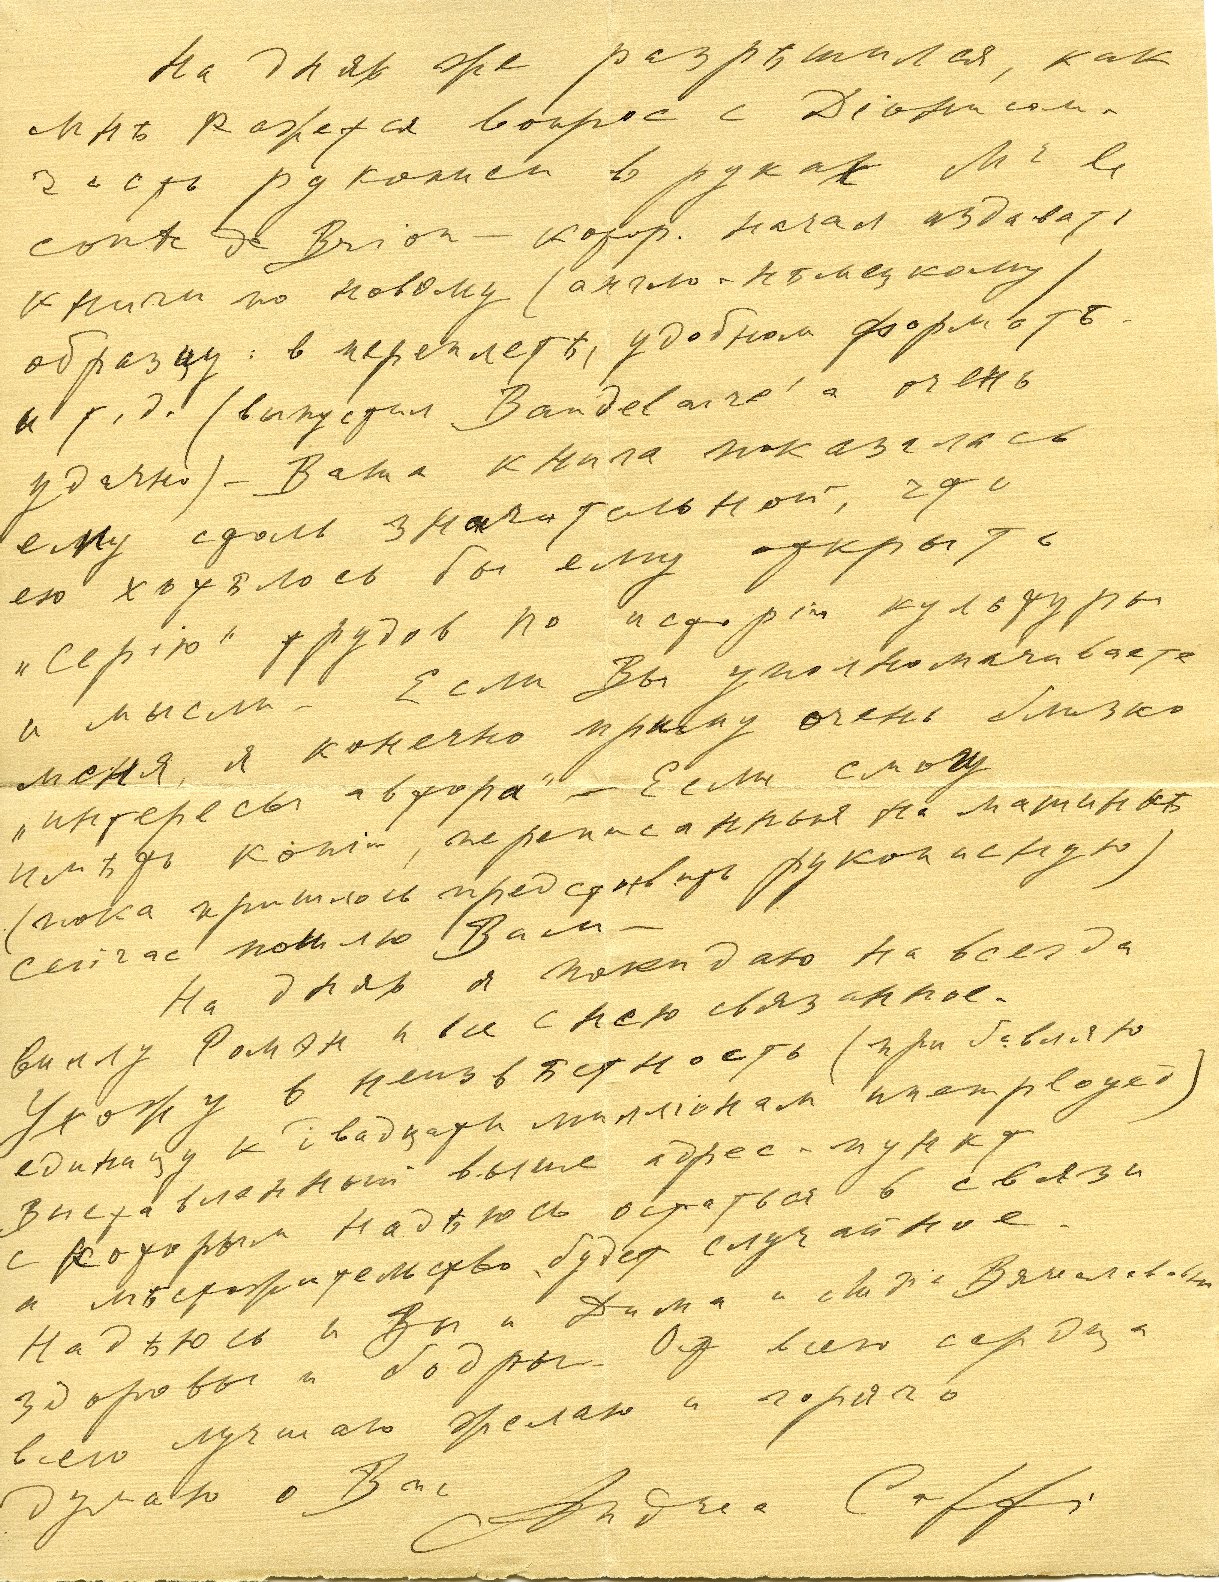 На днях же разрѣшился, как
мнѣ кажется вопрос с Діонисом.
Часть рукописи в руках Mr le
comte de Brion — котор. начал издавать
книги по новому (англо-нѣмецкому)
образцу: в переплетѣ, удобном форматѣ
и т.д. (выпустил Baudelaire'а очень
удачно) — Ваша книга показалась
ему столь значительной, что
ею хотѣлось бы ему открыть
„серію" трудов по исторіи культуры
и мысли — Если Вы уполномачиваете
меня, я конечно приму очень близко
„интересы автора" — Если смогу
имѣть копіи, переписанныя на машинкѣ
(пока пришлось представить рукописную)
сейчас пошлю Вам —
На днях я покидаю навсегда
виллу Ромэн и все с нею связанное.
Ухожу в неизвѣстность (прибавляю
единицу к двадцати милліонам unemployed)
Выставленный выше адрес — пункт
с которым надѣюсь остаться в связи
и мѣстожительство будет случайное.
Надѣюсь и Вы и Дима и Лидія Вячеславовна
здоровы и бодры. От всего сердца
всего лучшаго желаю и горячо
думаю о Вас Andrea Caffi